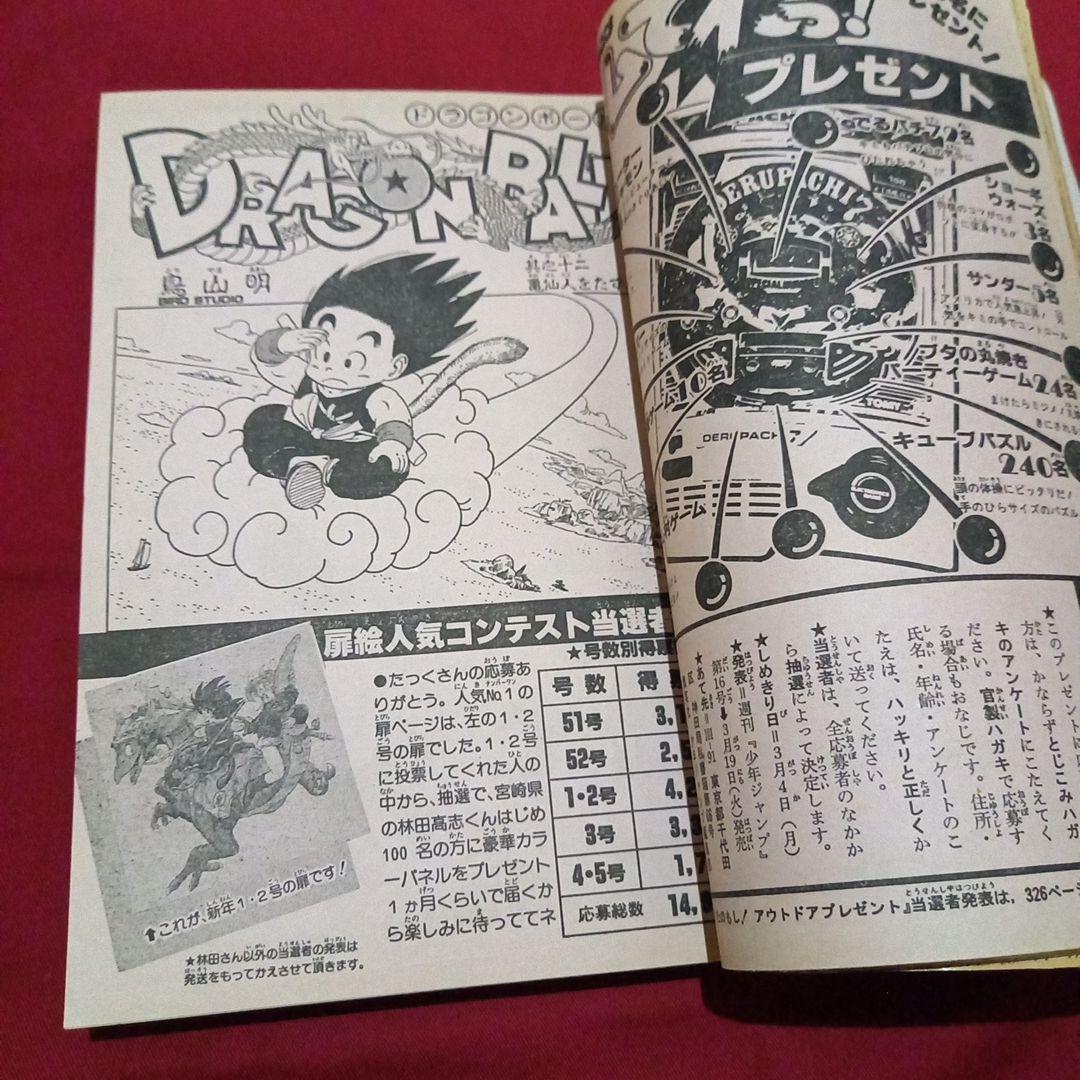 ドラゴンボー
DRAGON BALL
鳥山明
BIRD STUDIO
其之十二
亀仙人をたず
扉絵人気コンテスト当選者
●たっくさんの応募あ
りがとう。人気No.1の
扉ページは、左の1・2
号の扉でした。1・2号
に投票してくれた人の
中から、抽選で、宮崎県
の林田高志くんはじめ
100名の方に豪華カラ
ーパネルをプレゼント
1か月くらいで届くか
ら楽しみに待っててネ
⬆これが、新年1・2号の扉です!
★林田さん以外の当選者の発表は
発送をもってかえさせて頂きます。
★号数別得
号数 得
51号 3,
52号 2,5
1・2号 4,2
3号 3,3
4・5号 1,7
応募総数 14,
プレゼント
でるパチ7
DERUPACHI7
ショーギ
ウォーズ
3名
サンダー
アメリカで人気急上昇!
気をキミの手でコントロール
ブタの丸焼き
パーティーゲーム24名
TOMY
DERUPACHI 7
ゲーム
キューブパズル
240名
頭の体操にピッタリだ!
手のひらサイズのパズル
★このプレゼントに
方は、かならずとじこみハガ
キのアンケートにこたえてく
ださい。官製ハガキで応募す
る場合もおなじです。住所・
氏名・年齢・アンケートのこ
たえは、ハッキリと正しくか
いて送ってください。
★当選者は、全応募者のなかか
ら抽選によって決定します。
★しめきり日=3月4日(月)
★発表=週刊『少年ジャンプ』
第16号➡3月19日(火)発売
★あて先=101-91 東京都千代田
たのもし!アウトドアプレゼント』当選者発表は、326ペー